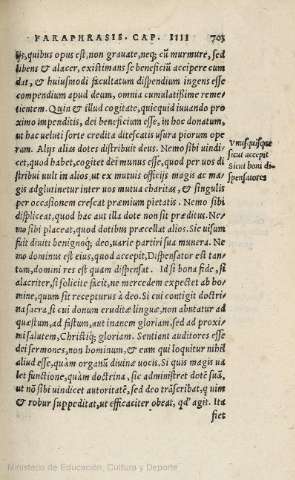 PARAPHRASIS. CAP. IIII 703
ijs, quibus opus est, non grauate, neq; cũ murmure, sed
libens & alacer, existimans se beneficiũ accipere cum
dat, & huiusmodi facultatum dispendium ingens esse
compendium apud deum, omnia cumulatissime reme-
tientem. Quin & illud cogitate, quicquid iuuando pro
ximo impenditis, dei beneficium esse, in hoc donatum,
ut hac uelut sorte credita ditescatis usura piorum ope
rum. Alijs alias dotes distribuit deus. Nemo sibi uindi-
cet, quod habet, cogitet dei munus esse, quod per uos di
stribui uult in alios, ut ex mutuis officijs magis ac ma-
gis adglutinetur inter uos mutua charitas, & singulis
per occasionem crescat præmium pietatis. Nemo sibi
displiceat, quod hac aut illa dote non sit præditus. Ne-
mo sibi placeat, quod dotibus præcellat alios. Sic uisum
fuit diuiti benignoq; deo, uarie partiri sua munera. Ne
mo dominus est eius, quod accepit, Dispensator est tan-
tum, domini res est quam dispensat. Id si bona fide, si
alacriter, si solicite facit, ne mercedem expectet ab ho-
mine, quum sit recepturus à deo. Si cui contigit doctri-
na sacra, si cui donum eruditæ linguæ, non abutatur ad
quæstum, ad fastum, aut inanem gloriam, sed ad proxi-
mi salutem, Christiq; gloriam. Sentiant auditores esse
dei sermones, non hominum, & eum qui loquitur nihil
aliud esse, quàm organũ diuinæ uocis. Si quis magis ua
let functione, quàm doctrina, sic administret dotẽ suã,
ut nõ sibi uindicet autoritatẽ, sed deo trãscribat, q uim
& robur suppeditat, ut efficaciter obeat, qd' agit. Ita
fiet
Vnusquisque
sicut accepit
Sicut boni di-
spensatores
Ministerio de Educación, Cultura y Deporte